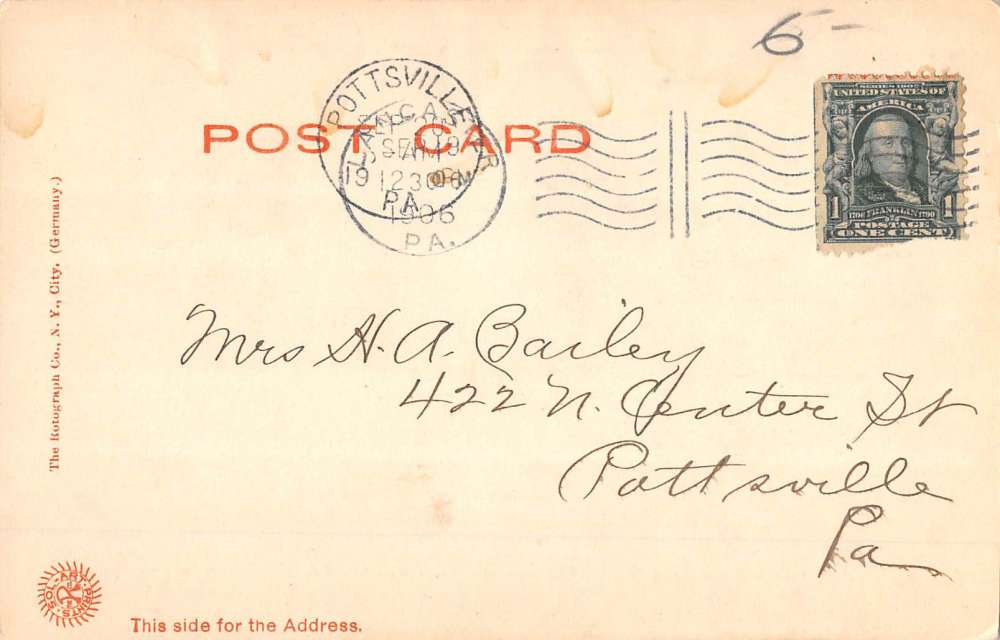 6-
POST CARD
POTTSVILLE
PA.
LANCASTER
SEP 19
12 30 PM
1906
PA.
SERIES 1902
UNITED STATES OF
AMERICA
1 1
1706 FRANKLIN 1790
POSTAGE
ONE CENT
Mrs H. A. Bailey
422 N. Center St
Pottsville
Pa
The Rotograph Co., N. Y., City. (Germany.)
SOL-ART PRINTS
This side for the Address.